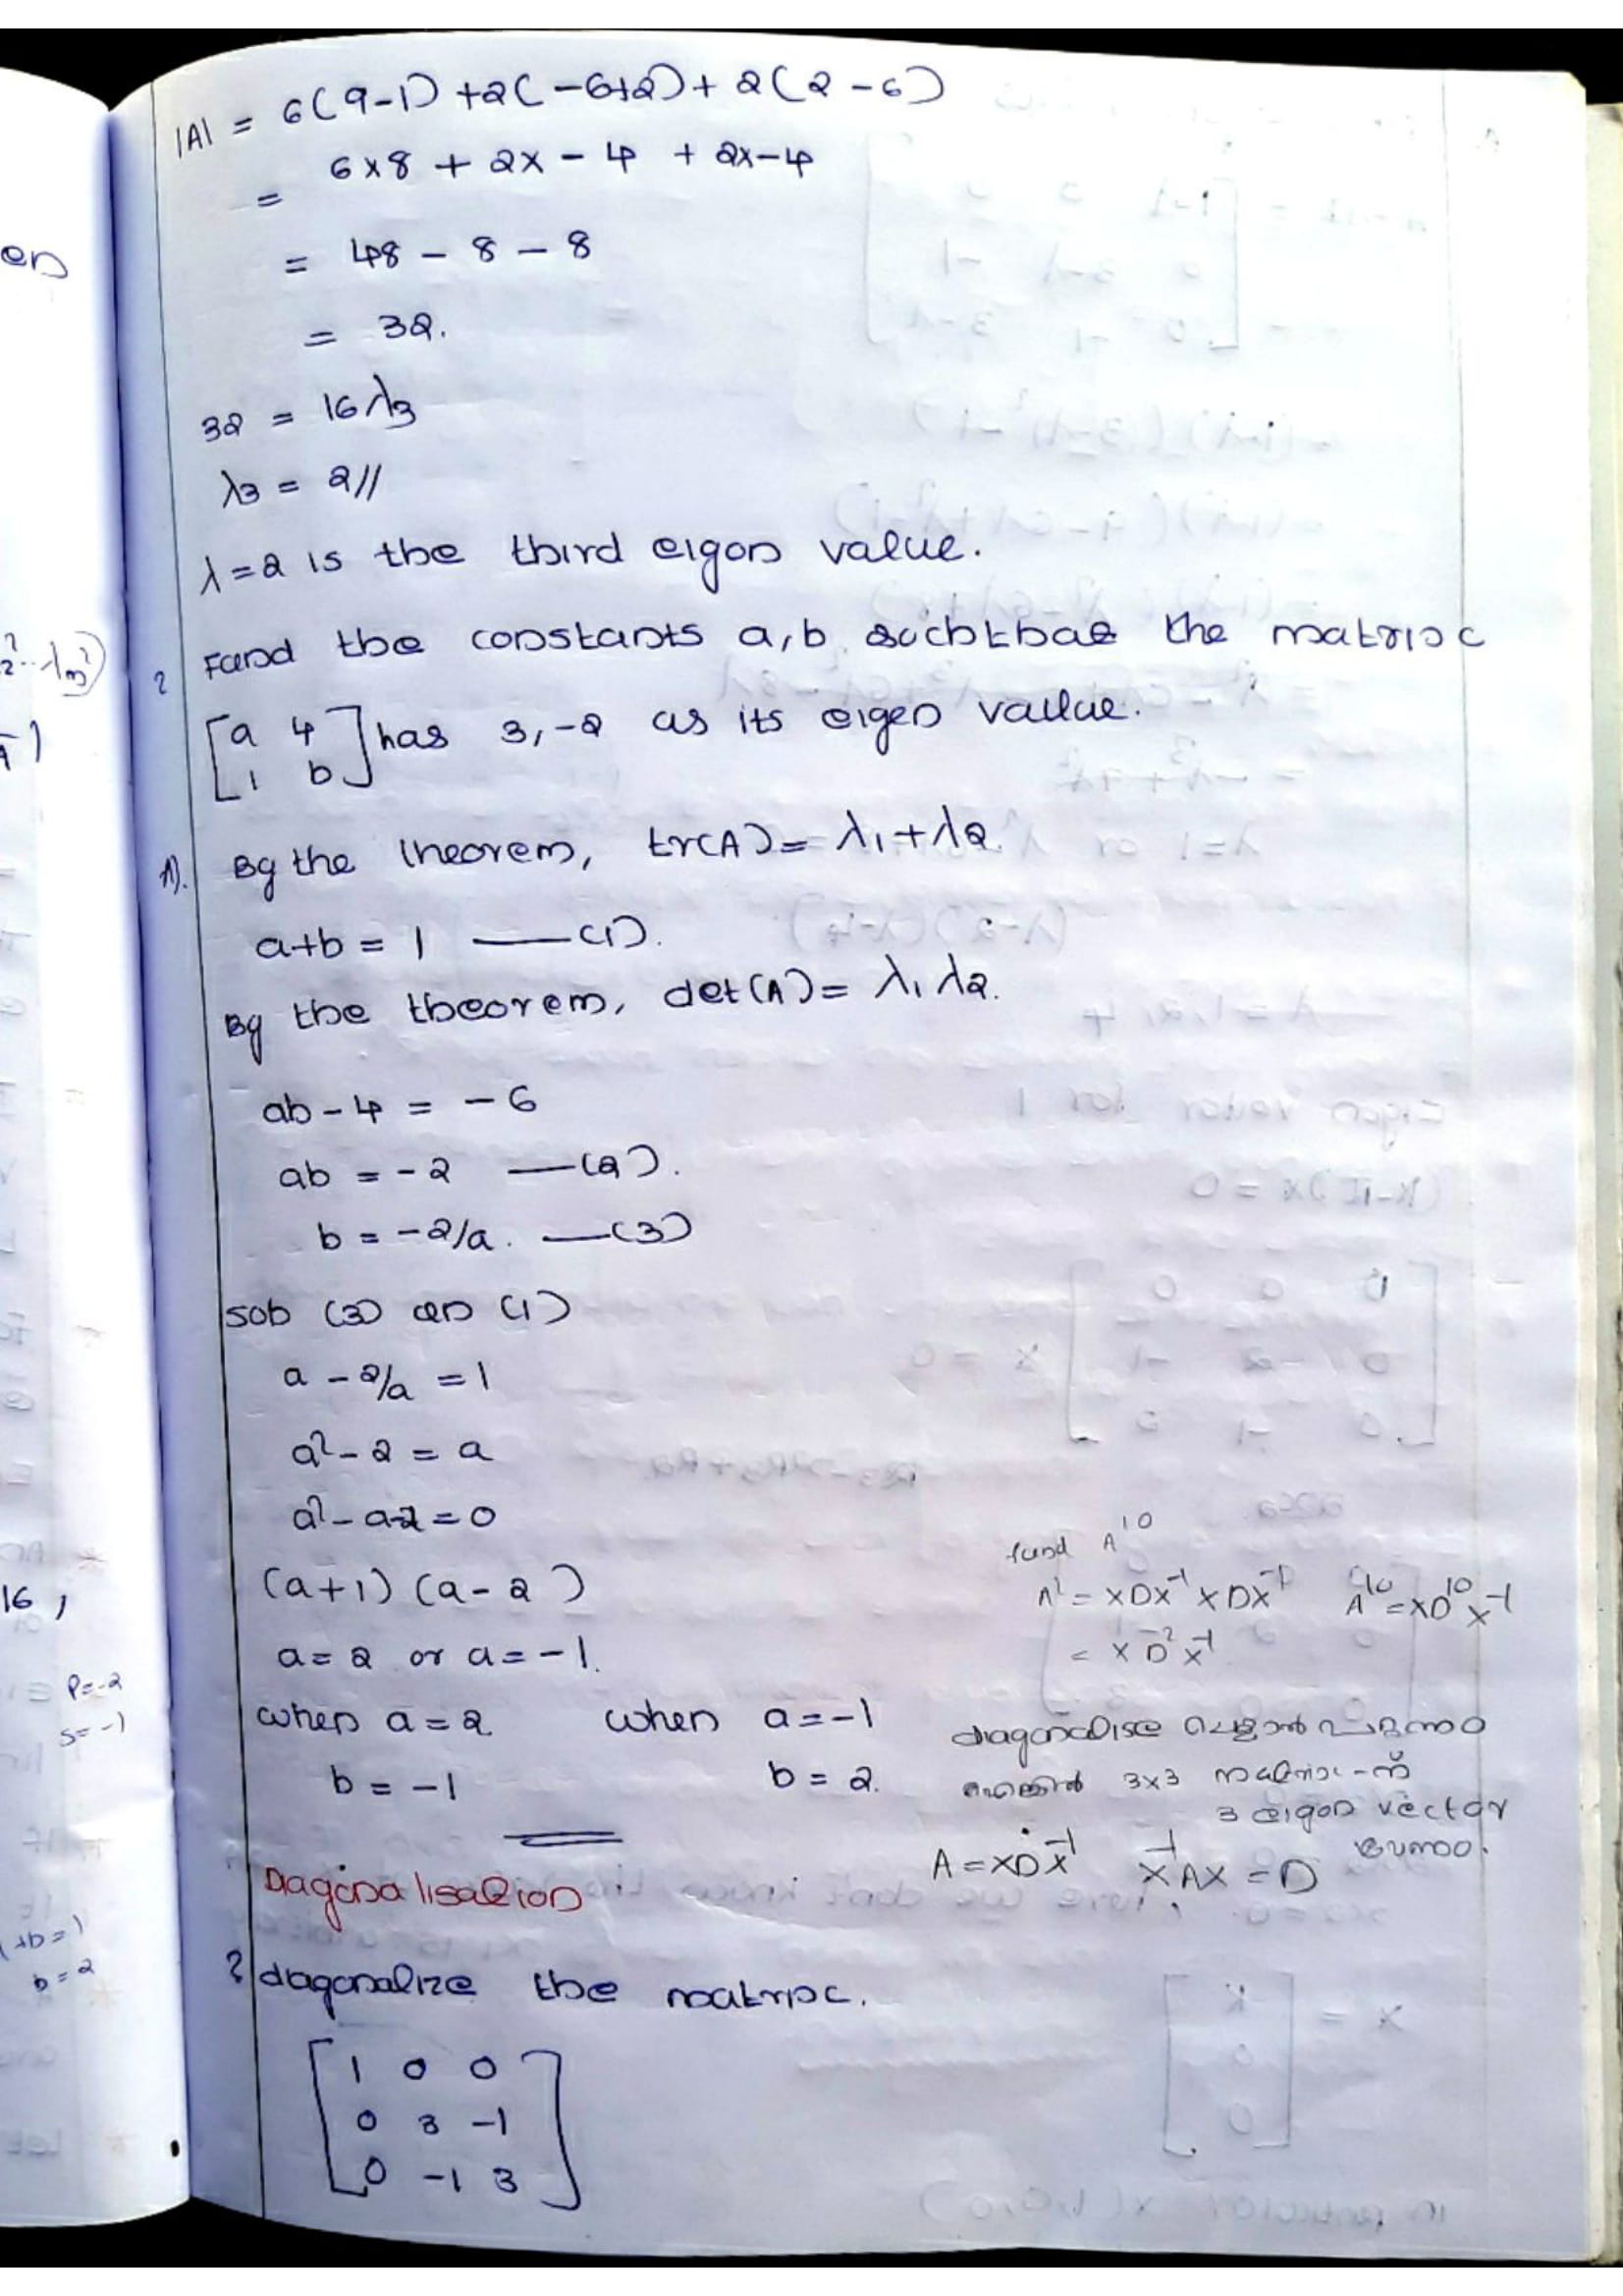 |A| = 6(9-1) +2(-6+2) + 2(2-6)
= 6×8 + 2x-4 + 2x-4
= 48 - 8 - 8
= 32.
32 = 16λ3
λ3 = 2//
λ=2 is the third eigen value.
? Find the constants a,b such that the matrix
[a 4
1 b] has 3,-2 as its eigen value.
A). By the theorem, tr(A) = λ1+λ2.
a+b = 1 —(1).
By the theorem, det(A) = λ1 λ2.
ab-4 = -6
ab = -2 —(2).
b = -2/a. —(3)
sub (3) in (1)
a - 2/a = 1
a² - 2 = a
a² - a-2 = 0
(a+1) (a-2)
a = 2 or a = -1.
when a = 2 when a = -1
b = -1 b = 2.
find A^10
A² = XDX^-1 XDX^-1 A^10 = XD^10 X^-1
= X D² X^-1
diagonalise
3x3
3 eigen vector
A = XDX^-1 X^-1 AX = D
Diagonalisation
? diagonalize the matrix.
1 0 0
0 3 -1
0 -1 3
en
16,
P=-2
s=-1
+b=1
b=2